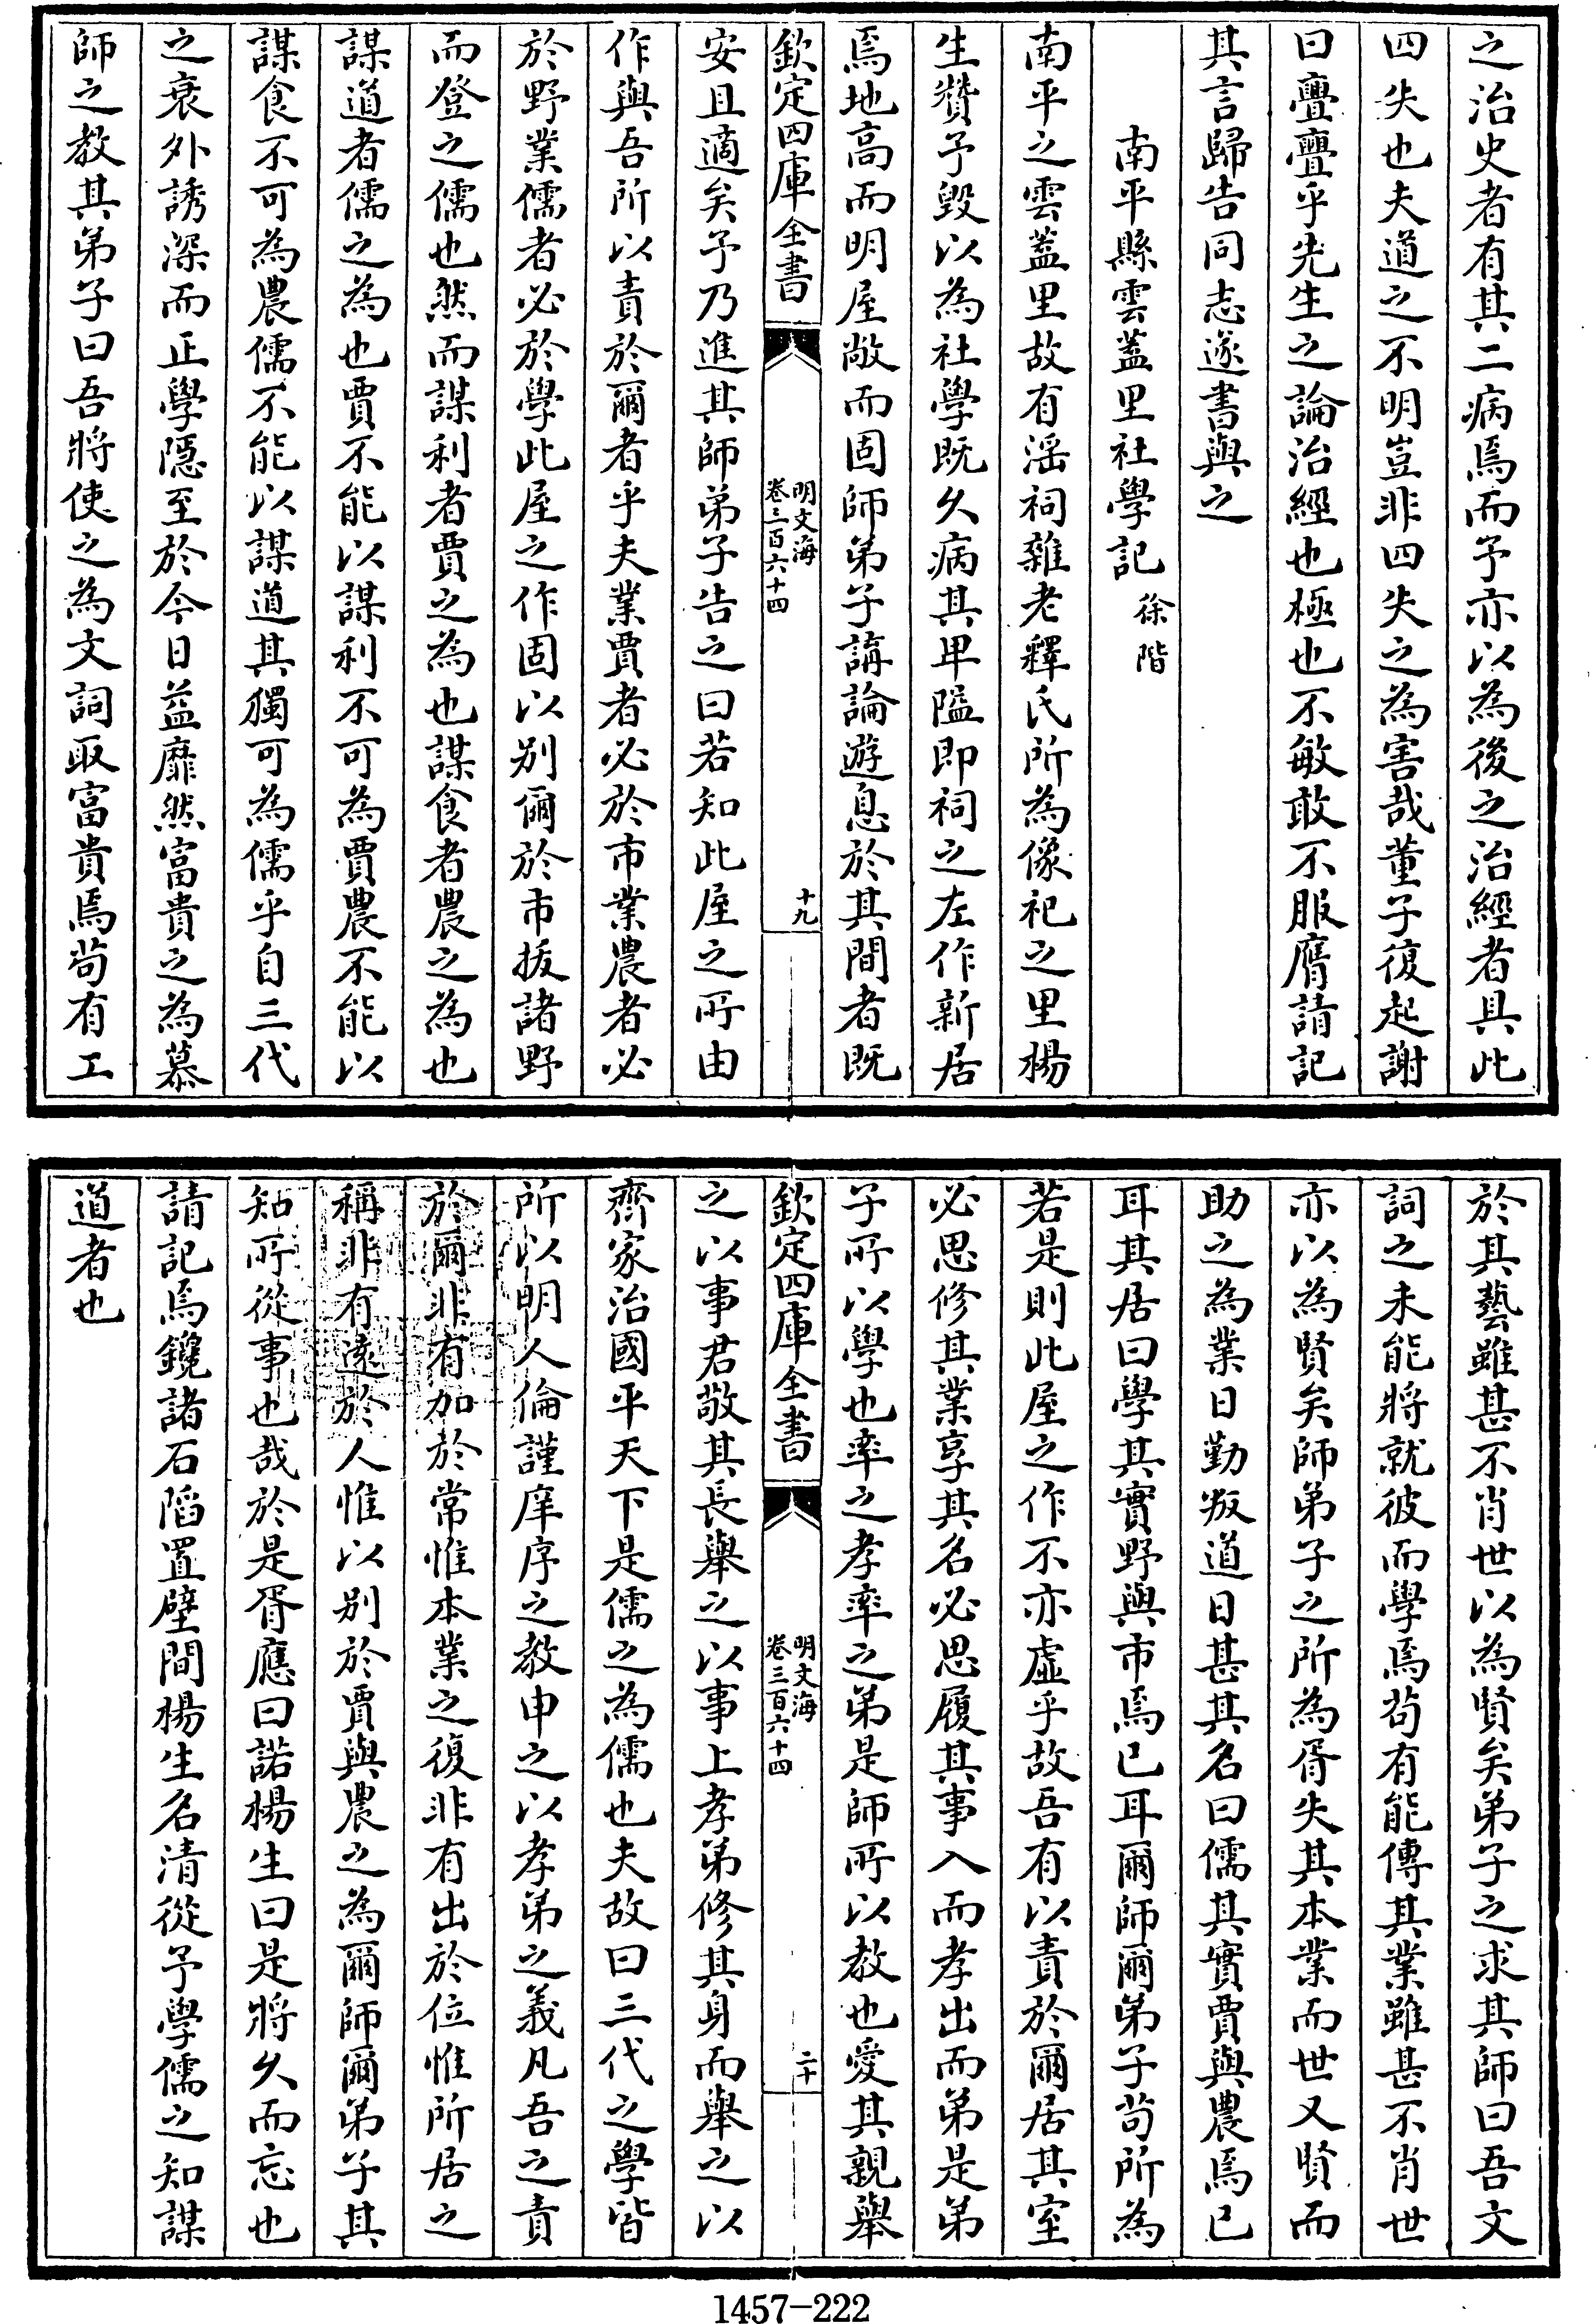 之治史者有其二病焉而予亦以為後之治經者具此
四失也夫道之不明豈非四失之為害哉董子復起謝
曰亹亹乎先生之論治經也極也不敏敢不服膺請記
其言歸告同志遂書與之
南平縣雲蓋里社學記 徐階
南平之雲蓋里故有滛祠雜老釋氏所為像祀之里楊
生贊予毀以為社學既久病其卑隘即祠之左作新居
焉地高而明屋敞而固師弟子講論遊息於其間者既
欽定四庫全書
明文海
卷三百六十四
十九
安且適矣予乃進其師弟子告之曰若知此屋之所由
作與吾所以責於爾者乎夫業賈者必於市業農者必
於野業儒者必於學此屋之作固以別爾於市拔諸野
而登之儒也然而謀利者賈之為也謀食者農之為也
謀道者儒之為也賈不能以謀利不可為賈農不能以
謀食不可為農儒不能以謀道其獨可為儒乎自三代
之衰外誘深而正學隱至於今日益靡然富貴之為慕
師之教其弟子曰吾將使之為文詞取富貴焉茍有工
於其藝雖甚不肖世以為賢矣弟子之求其師曰吾文
詞之未能將就彼而學焉茍有能傳其業雖甚不肖世
亦以為賢矣師弟子之所為胥失其本業而世又賢而
助之為業日勤叛道日甚其名曰儒其實賈與農焉已
耳其居曰學其實野與市焉已耳爾師爾弟子茍所為
若是則此屋之作不亦虛乎故吾有以責於爾居其室
必思修其業享其名必思履其事入而孝出而弟是弟
子所以學也率之孝率之弟是師所以教也愛其親舉
欽定四庫全書
明文海
卷三百六十四
二十
之以事君敬其長舉之以事上孝弟修其身而舉之以
齊家治國平天下是儒之為儒也夫故曰三代之學皆
所以明人倫謹庠序之教申之以孝弟之義凡吾之責
於爾非有加於常惟本業之復非有出於位惟所居之
稱非有遠於人惟以別於賈與農之為爾師爾弟子其
知所從事也哉於是胥應曰諾楊生曰是將久而忘也
請記焉鑱諸石陷置壁間楊生名清從予學儒之知謀
道者也
1457-222